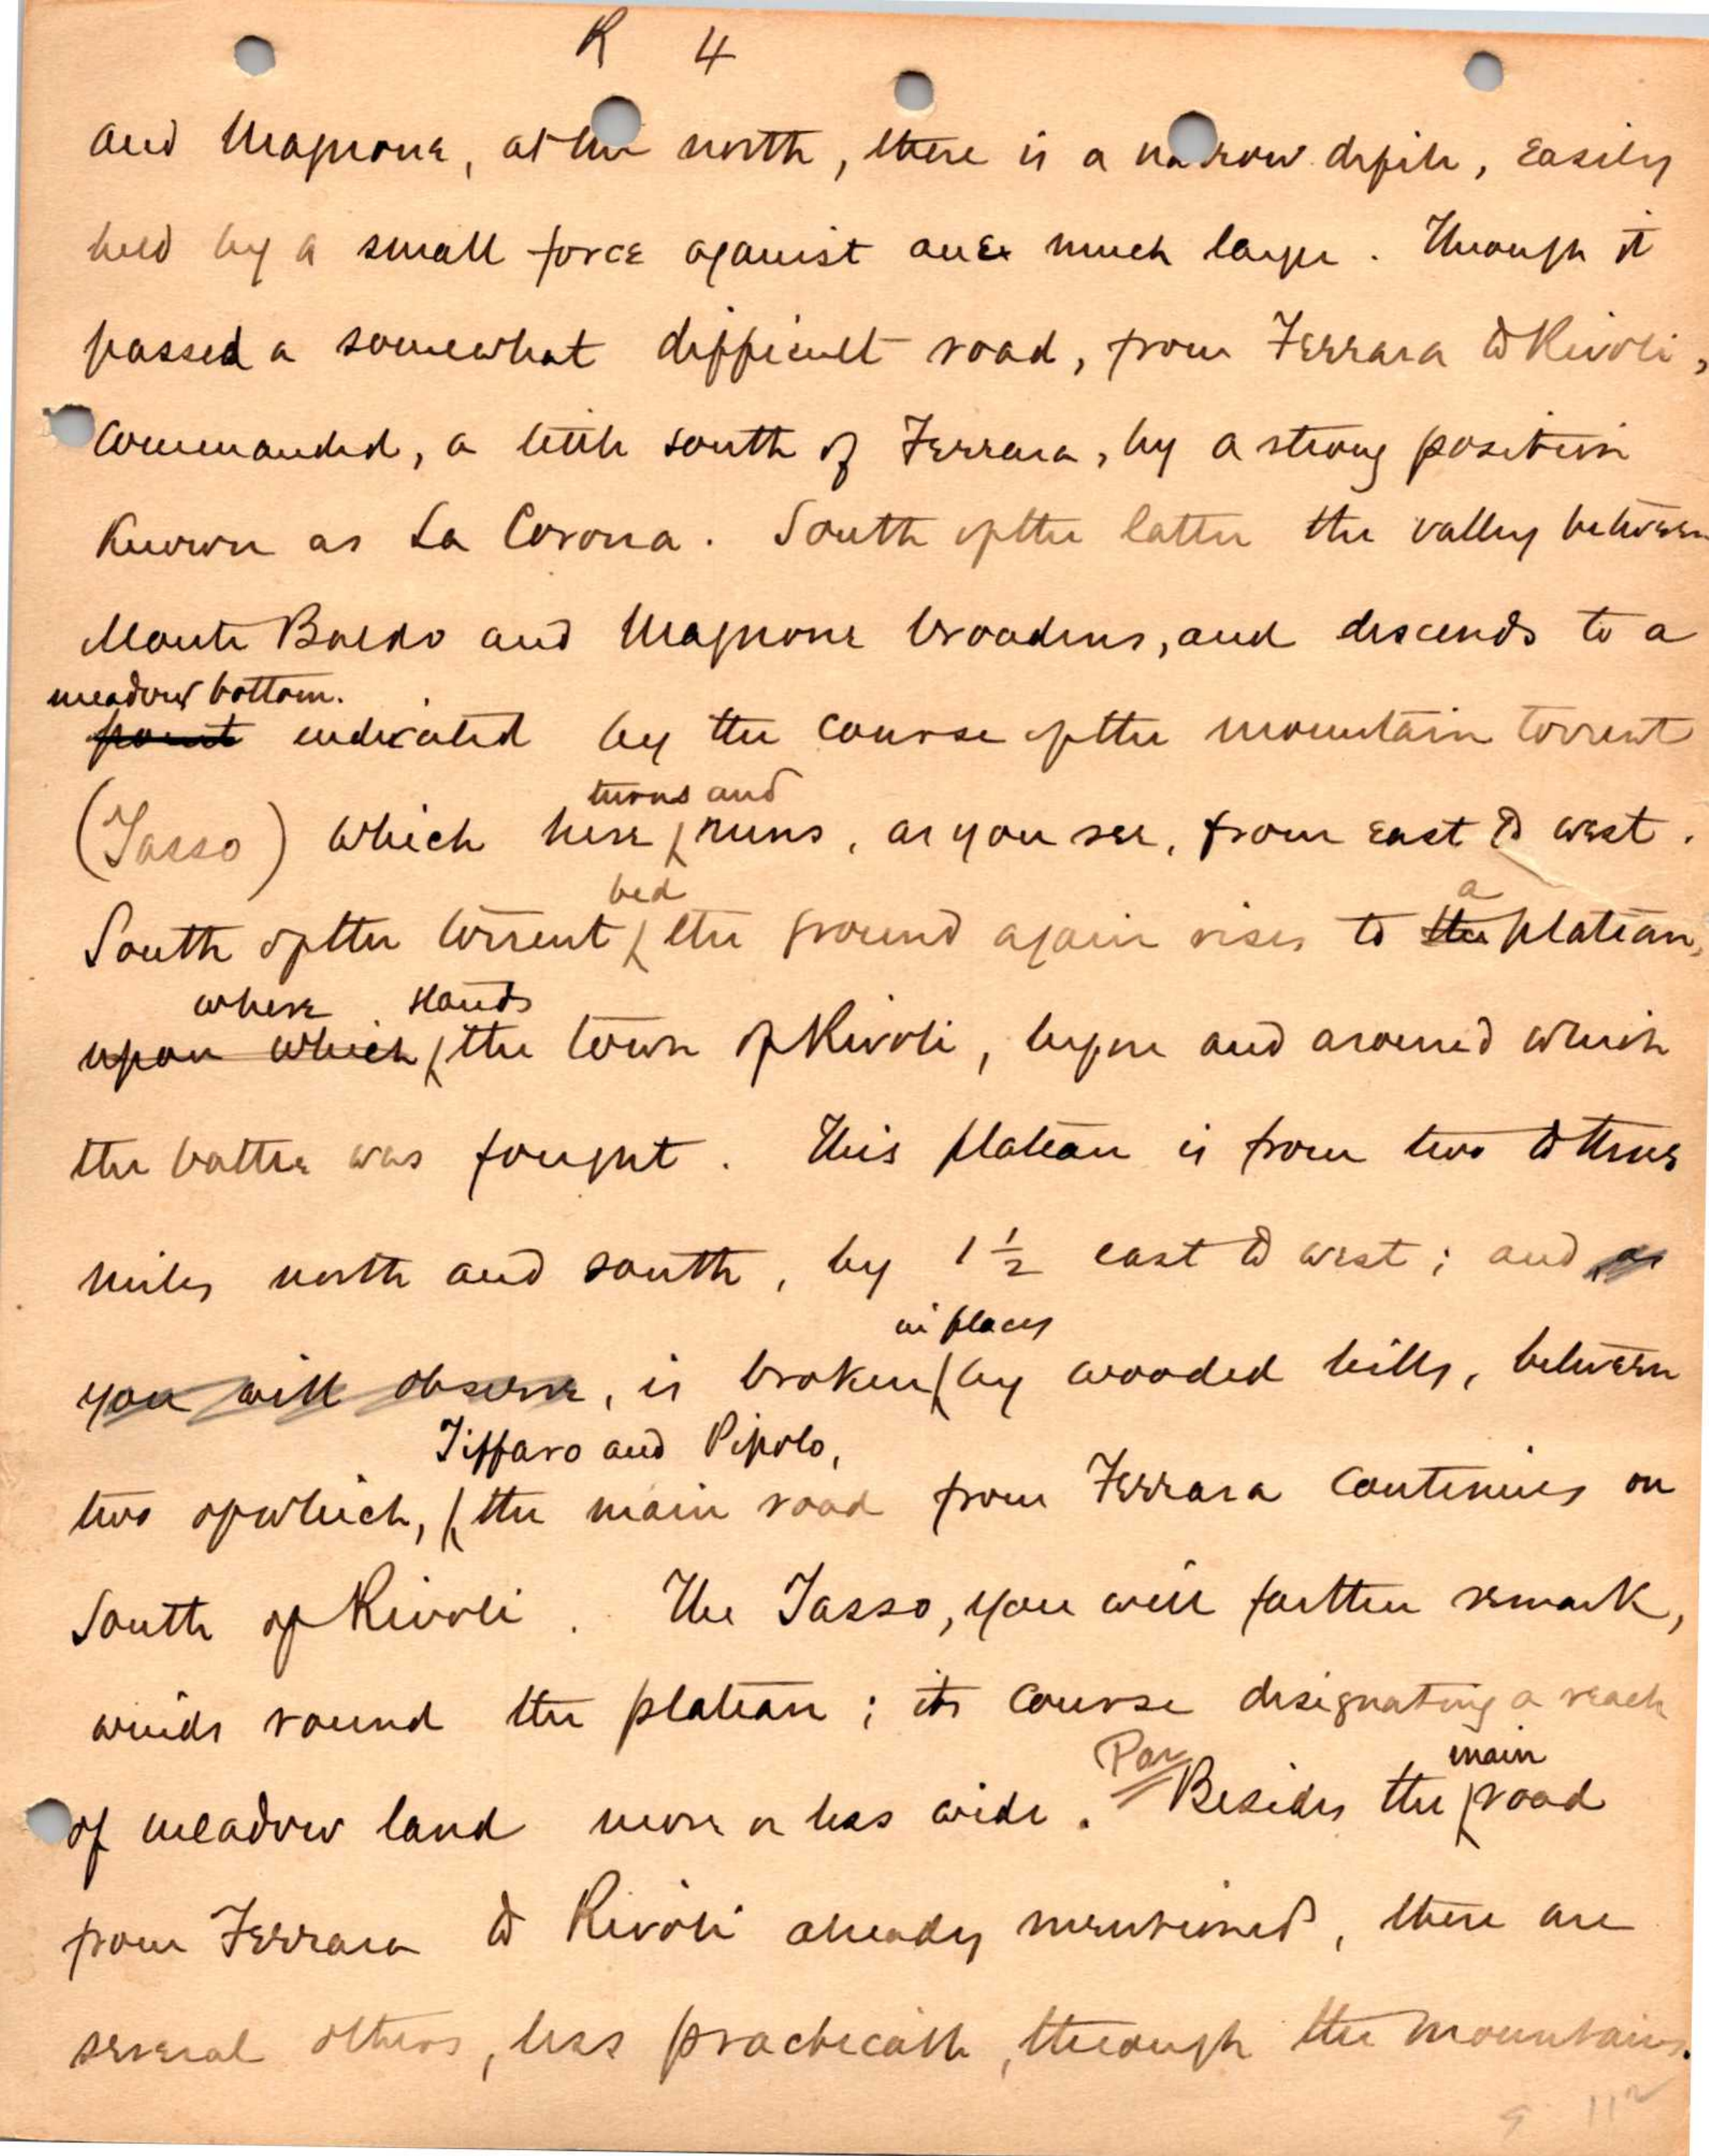 R 4
and Magnone, at the north, there is a narrow defile, easily
held by a small force against one much larger. Through it
passed a somewhat difficult road, from Ferrara to Rivoli,
commanded, a little south of Ferrara, by a strong position
known as La Corona. South of the latter the valley between
Monte Baldo and Magnone broadens, and descends to a
meadow bottom.
point indicated by the course of the mountain torrent
turns and
(Tasso) which here runs, as you see, from east to west.
bed a
South of the torrent the ground again rises to the plateau,
where stands
upon which the town of Rivoli, before and around which
the battle was fought. This plateau is from two to three
miles north and south, by 1 1/2 east to west; and as
in places
you will observe, is broken by wooded hills, between
Tiffaro and Pipolo,
two of which, the main road from Ferrara continues on
South of Rivoli. The Tasso, you will farther remark,
winds round the plateau; its course designating a reach
Par main
of meadow land more or less wide. Besides the road
from Ferrara to Rivoli already mentioned, there are
several others, less practicable, through the mountains.